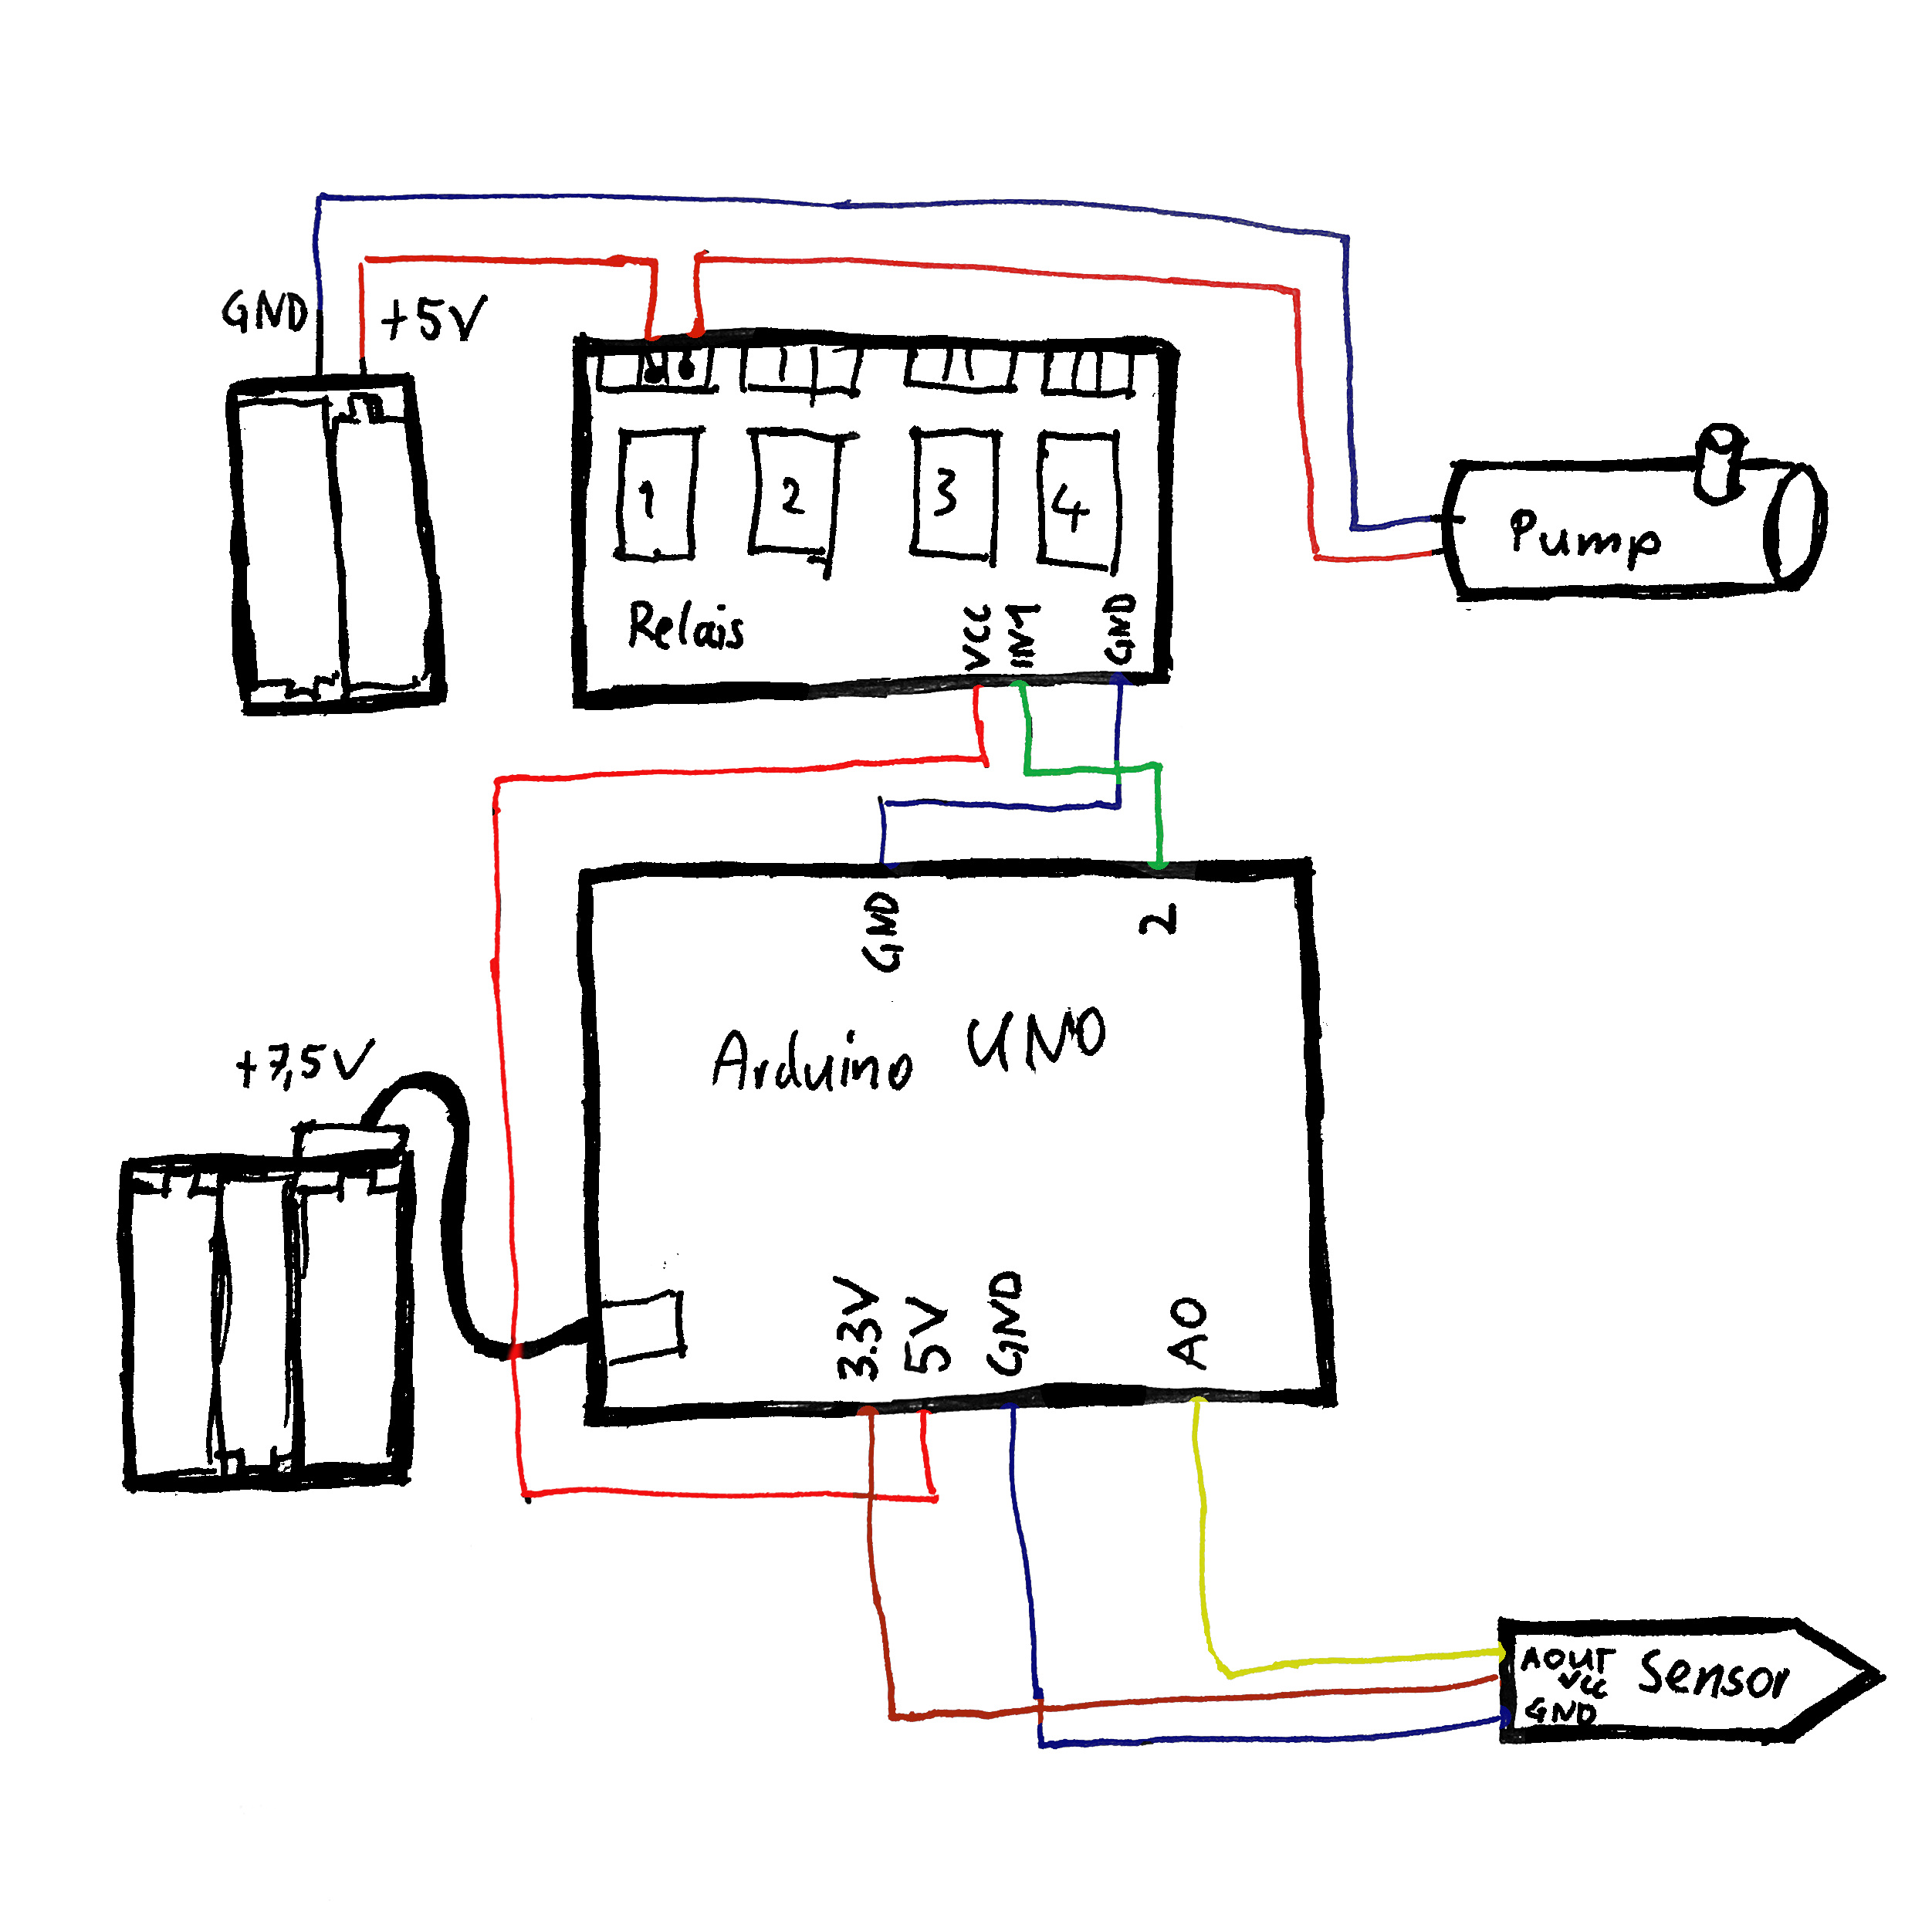 GND
+5V
1
2
3
4
Pump
Relais
VCC
IN1
GND
GND
2
Arduino UNO
+7,5V
3.3V
5V
GND
A0
AOUT
VCC
GND
Sensor